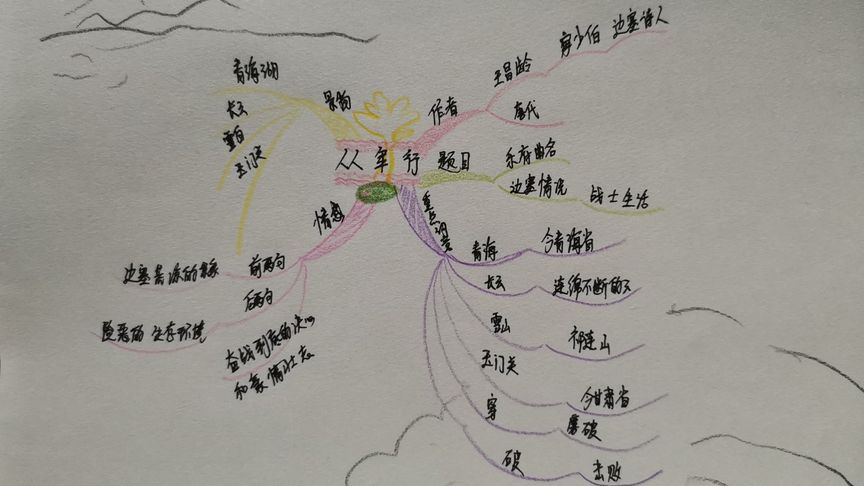 从军行
作者
王昌龄
字少伯
边塞诗人
唐代
题目
乐府曲名
边塞情况
战士生活
重点词荟
青海
今青海省
长云
连绵不断的云
雪山
祁连山
玉门关
今甘肃省
穿
磨破
破
击败
情感
前两句
边塞荒凉的景象
险恶的生存环境
后两句
奋战到底的决心
和豪情壮志
景物
青海湖
长云
雪白
玉门关